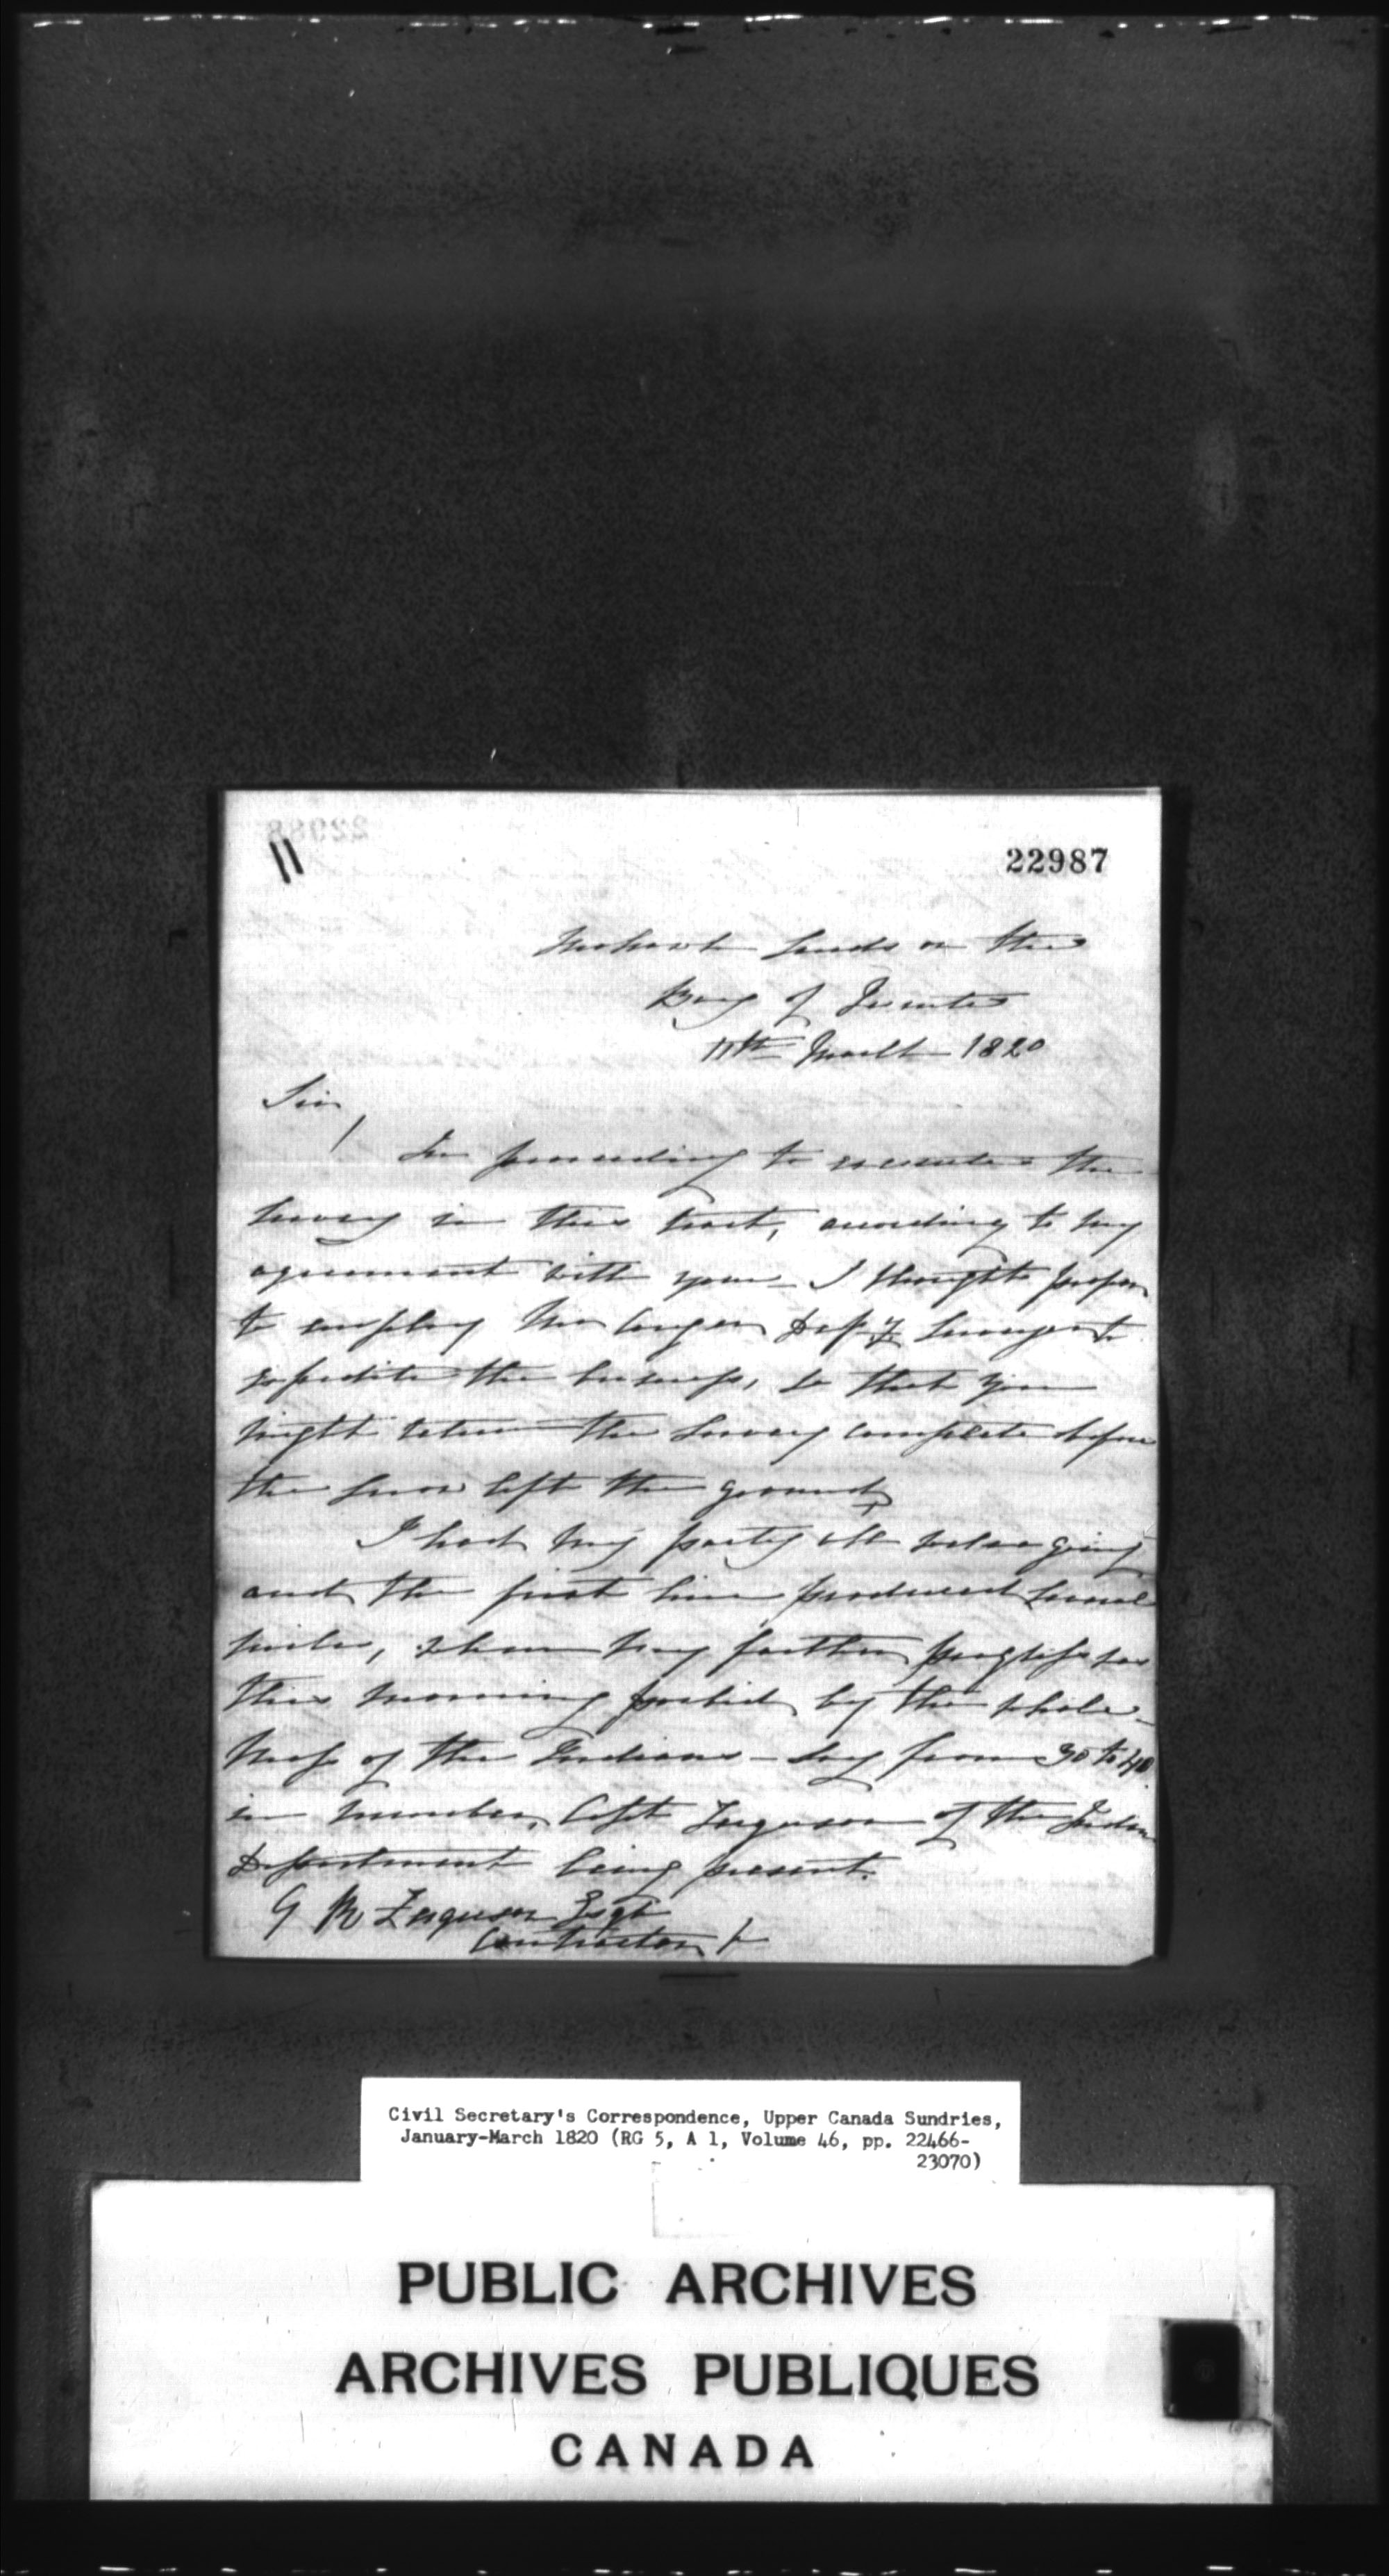 22987
Mohawk Lands on the
Bay of Quinte
11th March 1820
Sir,
In proceeding to execute the
Survey in this tract, according to my
agreement with you - I thought proper
to employ Mr Depy Surveyor to
expedite the business, so that you
might return the Survey complete before
the snow left the ground
I had my party all and going
and the first line produced several
miles, when my further progress was
this morning forbid by the whole
Mass of the Indians - say from 30 to 40
in number, Capt Ferguson of the Indian
Department being present.
G R Ferguson Esqr
Contractor &c
Civil Secretary's Correspondence, Upper Canada Sundries,
January-March 1820 (RG 5, A 1, Volume 46, pp. 22466-
23070)
PUBLIC ARCHIVES
ARCHIVES PUBLIQUES
CANADA